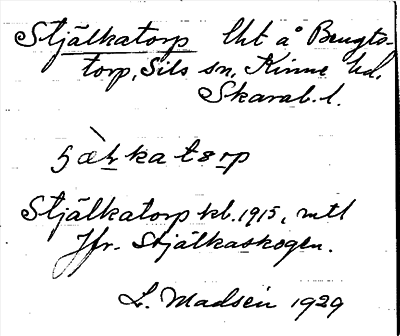 Stjälkatorp lht å Bengts-
torp, Sils sn, Kinne hd.
Skarab. l.
Stjälkatorp kb. 1915, mtl
Jfr. Stjälkaskogen.
L. Madsén 1929